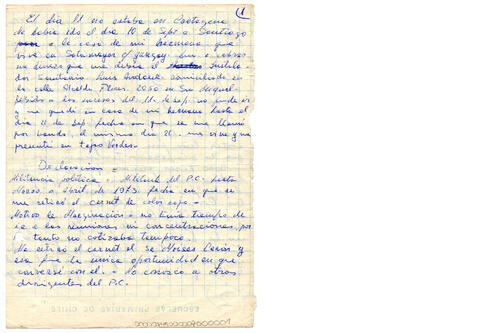 1
El día 11 no estaba en Cartagena
de había ido el día 10 de Sept a Santiago
a la casa de mi hermano que
vive en Sotomayor c/ yungay, fui a cobrar
un dinero que me debía el Instala
dor Sanitario Luis domiciliado en
la calle Alcalde Flores 2050 en San Miguel
debido a los sucesos del 11 de Sep. no pude ir
y me quedé en casa de mi hermano hasta el
día 21 de Sep. fecha en que se me llamó
por bando, el mismo día 21 me vine y me
presenté en Tejas Verdes.
Declaración =
Militancia política = Militante del P.C. hasta
Marzo o Abril de 1973. fecha en que se
me retiró el carnet de color rojo =
Motivo de Marginación = no tenía tiempo de
ir a las reuniones ni concentraciones, por
tanto no cotizaba tampoco.
Me retiro el carnet el Sr Moises y
esa fue la única oportunidad en que
conversé con el. = No conosco a otros
dirigentes del P.C.
ESCUELAS PRIMARIAS DE CHILE